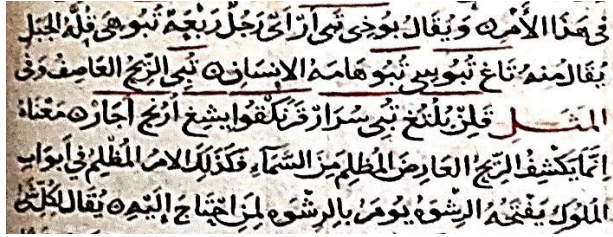 في هَذا الأَمْرِ ۝ وَيُقَالُ بُوذِي تَبي أَرْ أَيْ رَجُلٌ رَبْعَةٌ تُبُو هِيَ قُلَّةُ الجَبَلِ
يُقَالُ مِنهُ تَاغ تُبُوسِي تُبُو هَامَةُ الإِنسَانِ ۝ تُبي الرِّيحُ العَاصِفُ وَفي
المَثَــلِ قَلِنْ بُلُتُغ تُبي سُرَارْ قَرَنكَقُو ايشِغ أُرُنج أَجَارْ ۝ مَعْنَاهُ
إِنَّمَا يَكشِفُ الرِّيحُ العَارِضَ المُظلِمَ مِنَ السَّمَآءِ فَكَذَلِكَ الامرُ المُظْلِمُ في أَبوَابِ
المُلوكِ يَفْتَحُهُ الرِشْوَةُ يُومَرُ بالرِشْوَه لِمَنِ احْتَاجَ إِلَيْهِ ۝ يُقَالُ لِكُلِّ شَئ